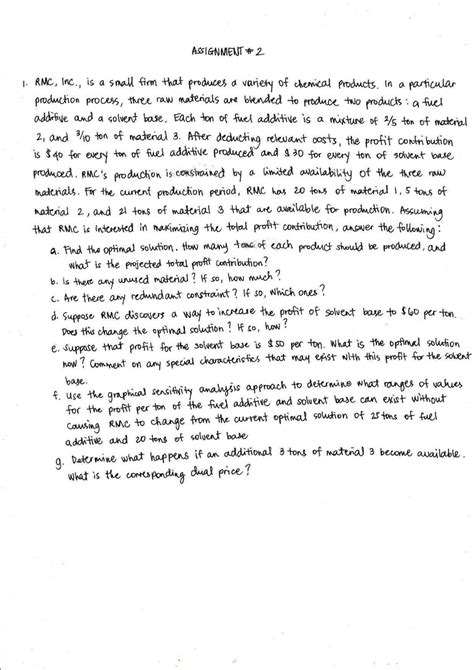 ASSIGNMENT # 2
1. RMC, Inc., is a small firm that produces a variety of chemical products. In a particular
production process, three raw materials are blended to produce two products: a fuel
additive and a solvent base. Each ton of fuel additive is a mixture of 2/5 ton of material
2, and 3/10 ton of material 3. After deducting relevant costs, the profit contribution
is $40 for every ton of fuel additive produced and $30 for every ton of solvent base
produced. RMC's production is constrained by a limited availability of the three raw
materials. For the current production period, RMC has 20 tons of material 1, 5 tons of
material 2, and 21 tons of material 3 that are available for production. Assuming
that RMC is interested in maximizing the total profit contribution, answer the following:
a. Find the optimal solution. How many tons of each product should be produced, and
what is the projected total profit contribution?
b. Is there any unused material? If so, how much?
c. Are there any redundant constraint? If so, which ones?
d. Suppose RMC discovers a way to increase the profit of solvent base to $60 per ton.
Does this change the optimal solution? If so, how?
e. Suppose that profit for the solvent base is $50 per ton. What is the optimal solution
now? Comment on any special characteristics that may exist with this profit for the solvent
base.
f. Use the graphical sensitivity analysis approach to determine what ranges of values
for the profit per ton of the fuel additive and solvent base can exist without
causing RMC to change from the current optimal solution of 25 tons of fuel
additive and 20 tons of solvent base
g. Determine what happens if an additional 3 tons of material 3 become available.
What is the corresponding dual price?